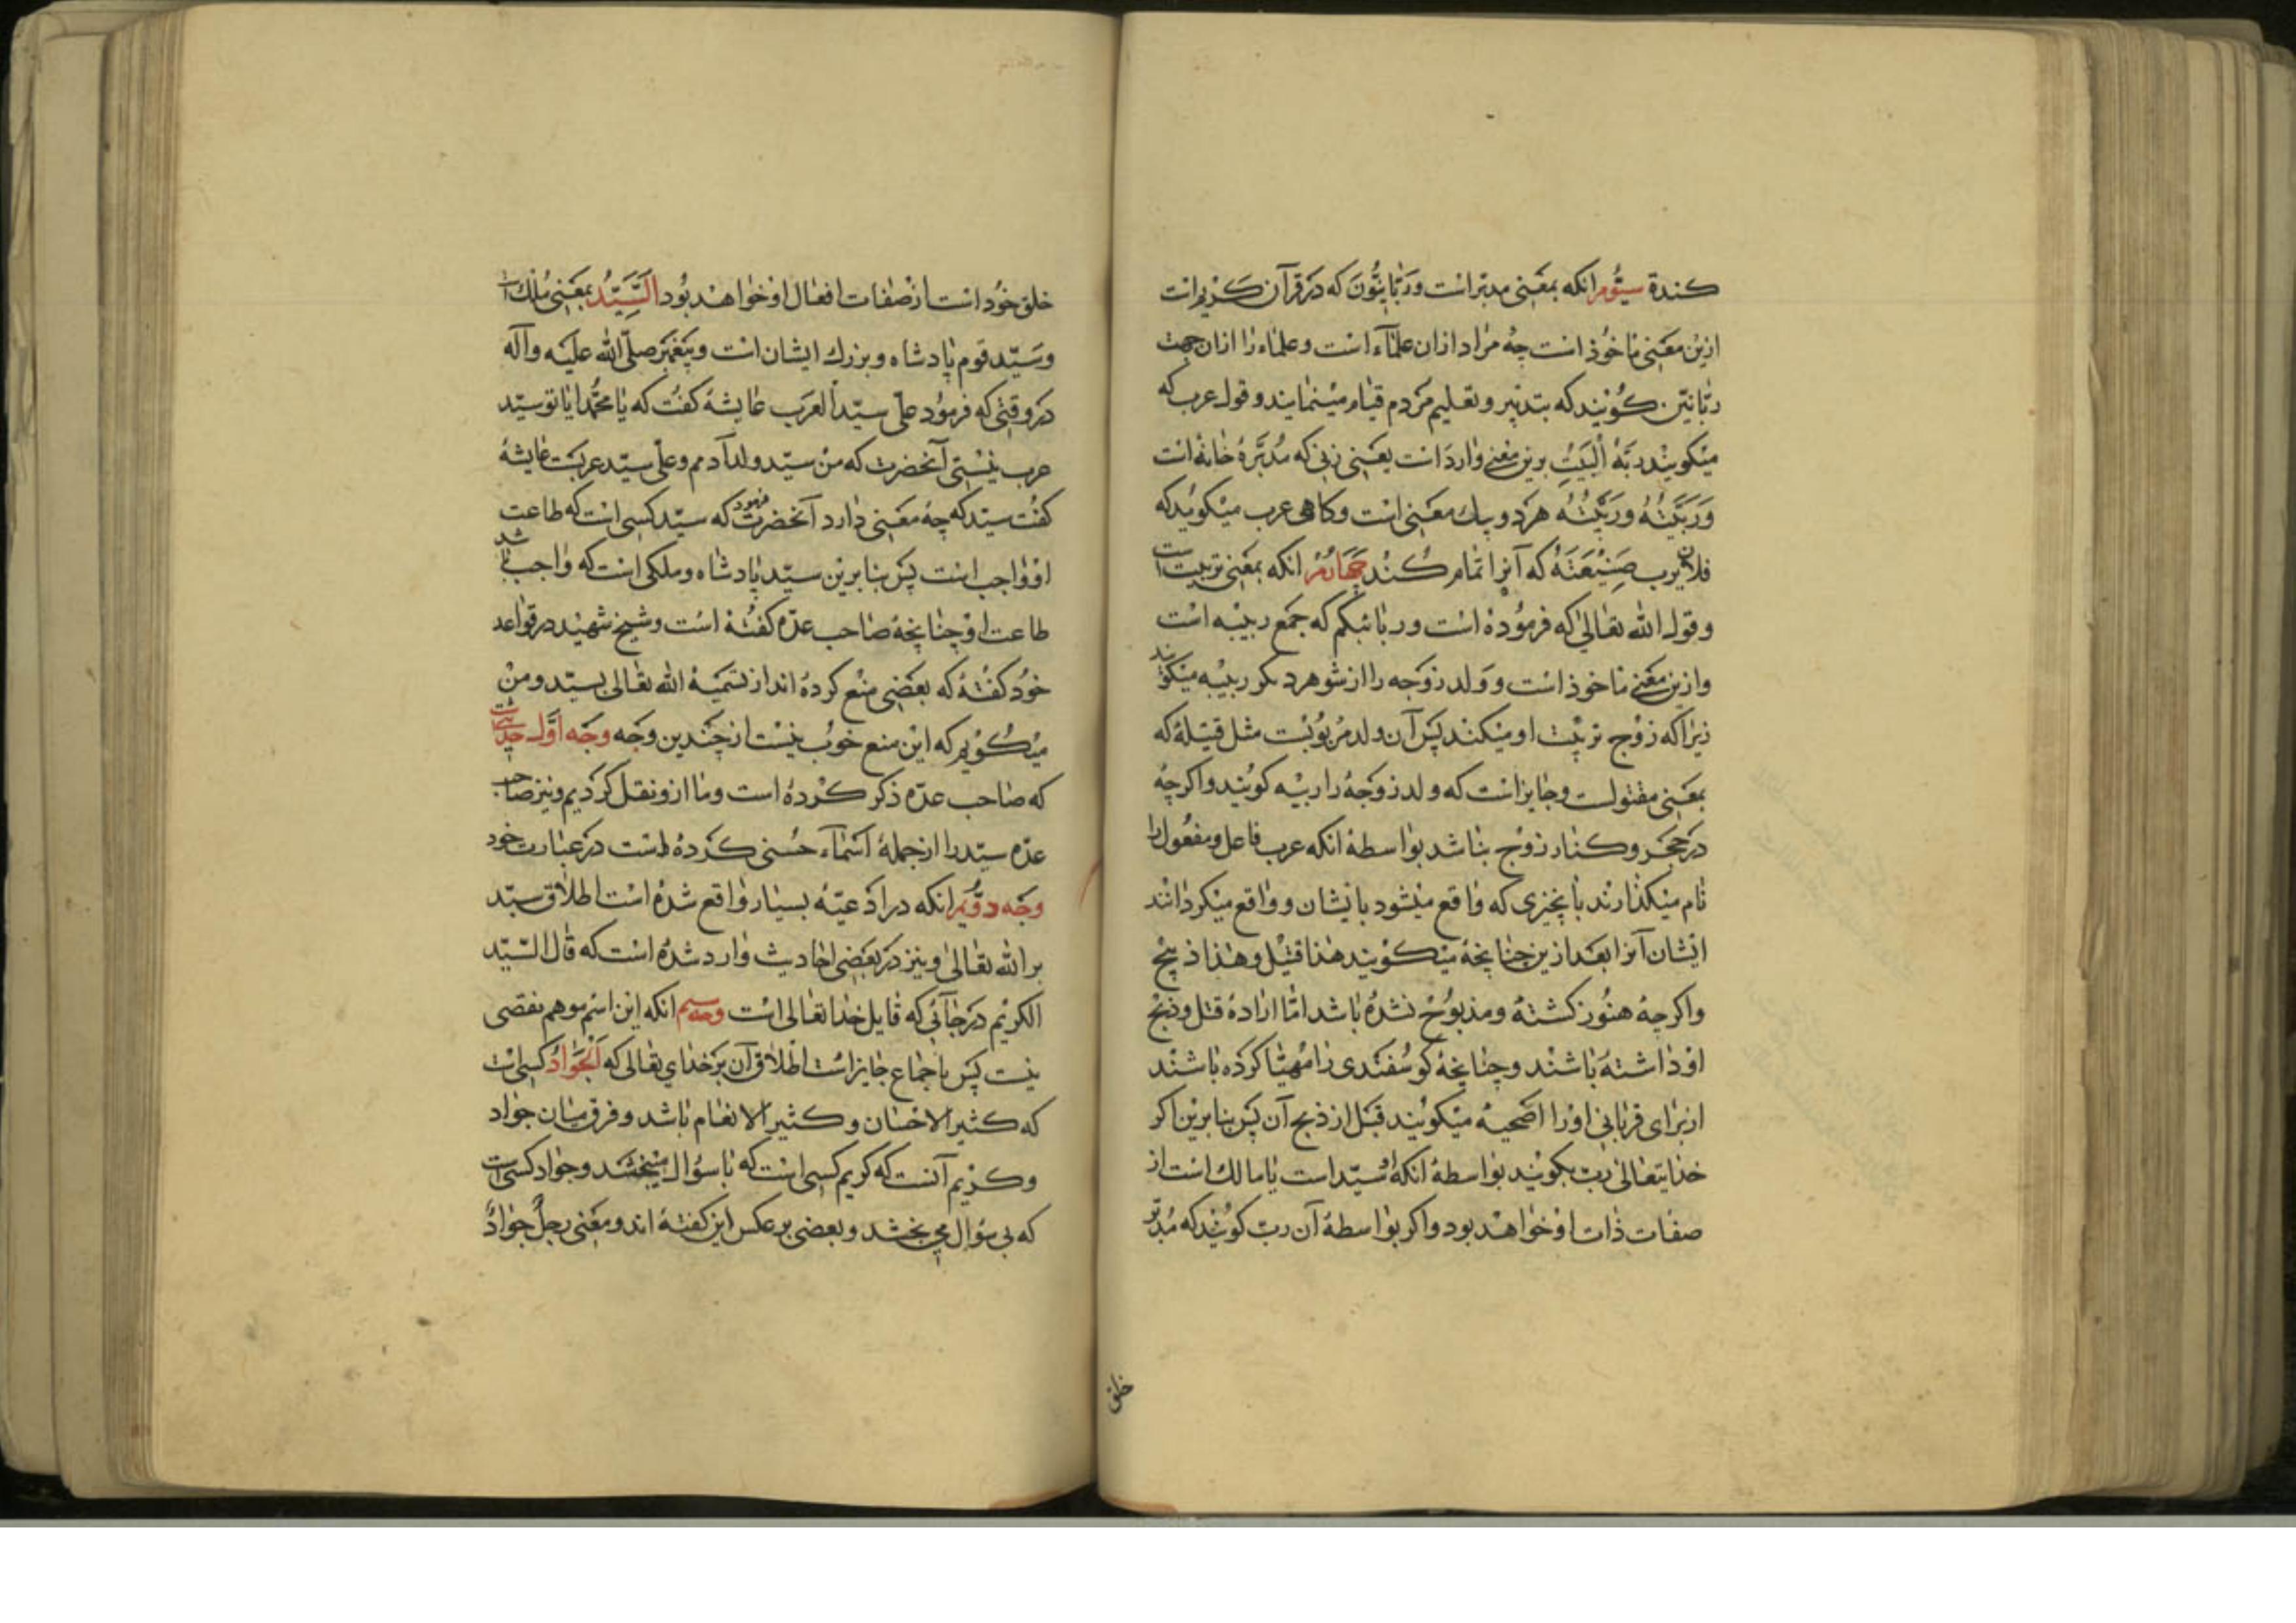 کنندهٔ سیّوم انکه بمعنی مدبّر است و ربّانیّون که در قرآن کریم است
ازین معنی ماخوذ است چه مراد ازان علماء است و علماء را ازان جهت
ربّانیّن کویند که بتدبیر و تعلیم مردم قیام مینمایند و قول عرب که
میکویند ربّة البیت برین معنی وارد است یعنی زنی که مدبّرهٔ خانه است
و ربّیته و ربّبته هر دو بیک معنی است و کاهی عرب میکوید که
فلان یرب صنیعته که آنرا تمام کند چهارم انکه بمعنی تربیت است
و قول الله تعالی که فرموده است و ربائبکم که جمع ربیبه است
و ازین معنی ماخوذ است و ولد زوجه را از شوهر دیکر ربیبه میکویند
زیرا که زوج تربیت او میکند پس آن ولد مربوبیت مثل قتیله که
بمعنی مقتولست و جایز است که ولد زوجه را ربیبه کویند و اکرچه
در حجر و کنار زوج نباشد بواسطهٔ انکه عرب فاعل و مفعول را
نام میکذارند بانچیزی که واقع میشود بایشان و واقع میکردانند
ایشان آنرا بعد ازین چنانچه میکویند هذا قتیل و هذا ذبیح
و اکرچه هنوز کشته و مذبوح نشده باشد امّا ارادهٔ قتل و ذبح
او داشته باشند و چنانچه کوسفندی را مهیّا کرده باشند
از برای قربانی او را اضحیه میکویند قبل از ذبح آن پس بنابرین اکر
خدایتعالی را ربّ بکویند بواسطهٔ انکه سیّد است یا مالک است از
صفات ذات او خواهد بود و اکر بواسطهٔ آن ربّ کویند که مدبّر
خلق
خلق خود است از صفات افعال او خواهد بود السّیّد بمعنی ملک است
و سیّد قوم پادشاه و بزرک ایشان است و پیغمبر صلّی الله علیه و آله
در وقتی که فرمود علی سیّد العرب عایشه کفت که یا محمّد ایا تو سیّد
عرب نیستی آنحضرت که من سیّد ولد آدمم و علی سیّد عربست عایشه
کفت سیّد که چه معنی دارد آنحضرت فرمود که سیّد کسی است که طاعت
او واجب است پس بنابرین سیّد پادشاه و ملکی است که واجب باشد
طاعت او چنانچه صاحب عدّه کفته است و شیخ شهید در قواعد
خود کفته که بعضی منع کرده اند از تسمیهٔ الله تعالی بسیّد و من
میکویم که این منع خوب نیست از چندین وجه وجه اوّل حدیثیست
که صاحب عدّه ذکر کرده است و ما ازو نقل کردیم و نیز صاحب
عدّه سیّد را از جملهٔ اسماء حسنی کرده است در عبارت خود
وجه دوّیم انکه در ادعیّه بسیار واقع شده است اطلاق سیّد
بر الله تعالی و نیز در بعضی احادیث وارد شده است که قال السّیّد
الکریم در جائی که قایل خدا تعالی است وجه سیم انکه این اسم موهم نقصی
نیست پس باجماع جایز است اطلاق آن بر خدای تعالی که الجواد کسی است
که کثیر الاحسان و کثیر الانعام باشد و فرق میان جواد
و کریم آنست که کریم کسی است که با سؤال میبخشد و جواد کسی است
که بی سؤال می بخشد و بعضی بر عکس این کفته اند و معنی رجل جواد